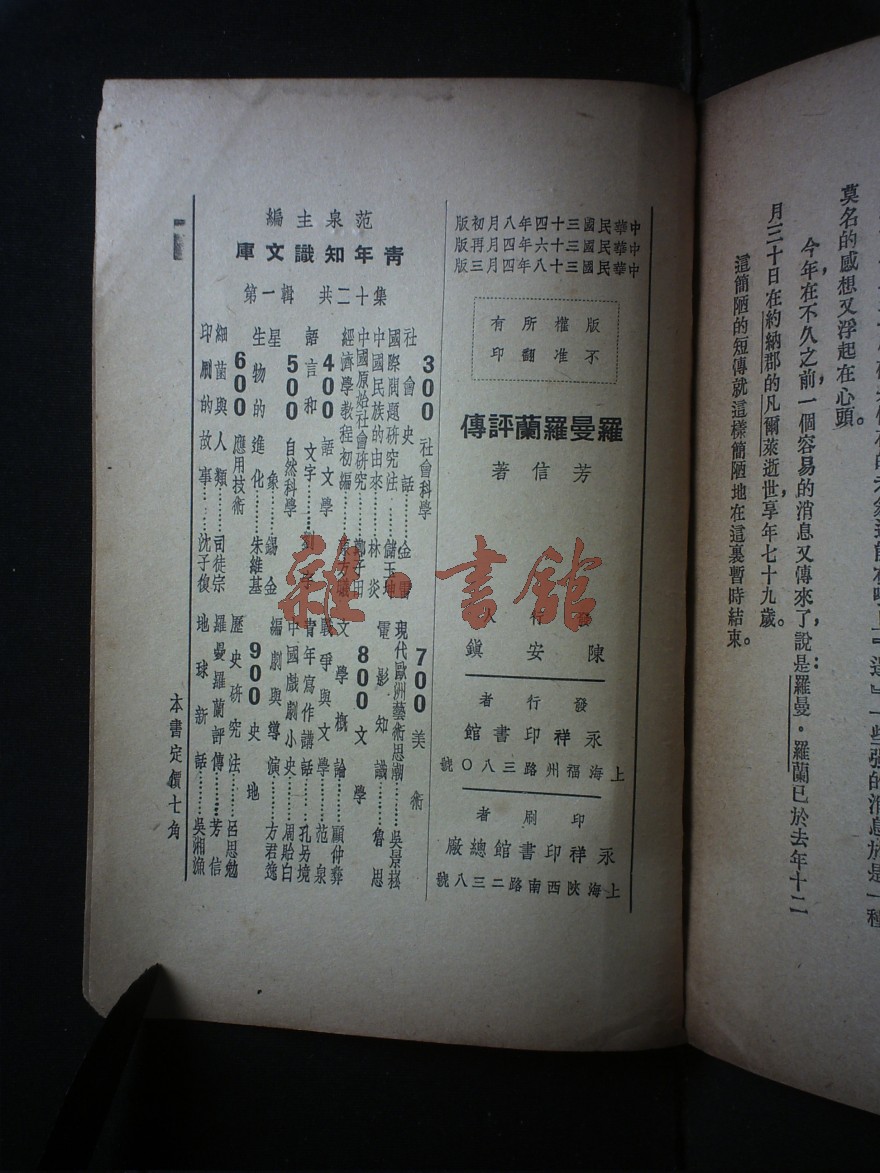 莫名的感想又浮起在心頭。
今年在不久之前，一個容易的消息又傳來了，說是羅曼·羅蘭已於去年十二
月三十日在約納郡的凡爾萊逝世，享年七十九歲。
這簡陋的短傳就這樣簡陋地在這裏暫時結束。
中華民國三十四年八月初版
中華民國三十六年四月再版
中華民國三十八年四月三版
版權所有
不准翻印
羅曼羅蘭評傳
芳信著
陳安鎮
發行者
永祥印書館
上海福州路三八〇號
印刷者
永祥印書館總廠
上海陝西南路二三八號
范泉主編
青年知識文庫
第一輯 共二十集
300 社會科學
社會史話……金
國際問題研究法……儲玉坤
中國民族的由來……林炎
中國原始社會研究
經濟學教程初編
400 語文學
語言和文字
500 自然科學
星象……錫金
生物的進化……朱維基
600 應用技術
細菌與人類……司徒宗
印刷的故事……沈子復
700 美術
現代歐洲藝術思潮……吳景崧
電影知識……魯思
800 文學
文學概論……顧仲彝
戰爭與文學……范泉
青年寫作講話……孔另境
中國戲劇小史……周貽白
編劇與導演……方君逸
900 史地
歷史研究法……呂思勉
羅曼羅蘭評傳……芳信
地球新話……吳湘漁
本書定價七角
雜·書館